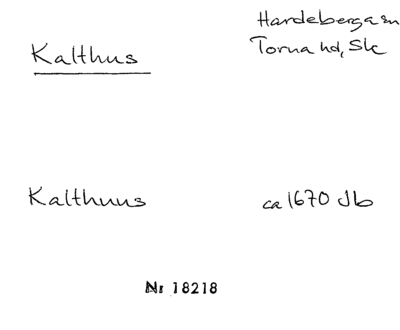 Kalthus
Hardeberga sn
Torna hd, Sk
Kalthuus
ca 1670 Jb
Nr 18218